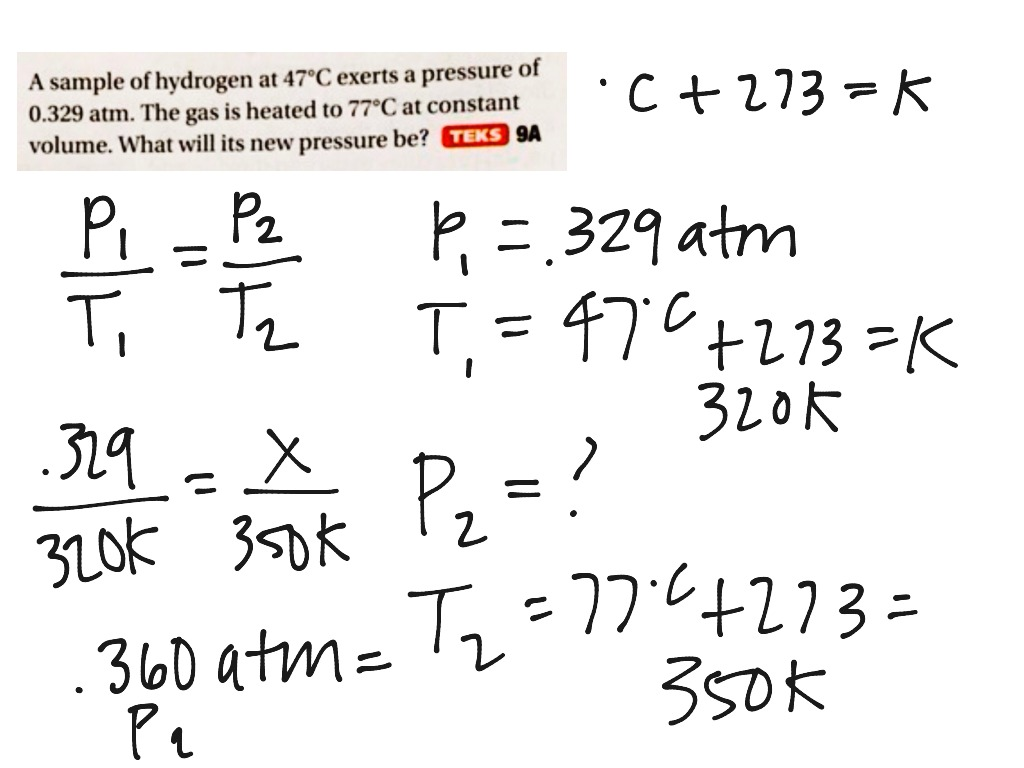 A sample of hydrogen at 47°C exerts a pressure of
0.329 atm. The gas is heated to 77°C at constant
volume. What will its new pressure be? TEKS 9A
°C + 273 = K
P₁/T₁ = P₂/T₂
P₁ = .329 atm
T₁ = 47°C +273 = K
320K
.329/320K = X/350K
P₂ = ?
T₂ = 77°C +273 =
350K
.360 atm =
P₂